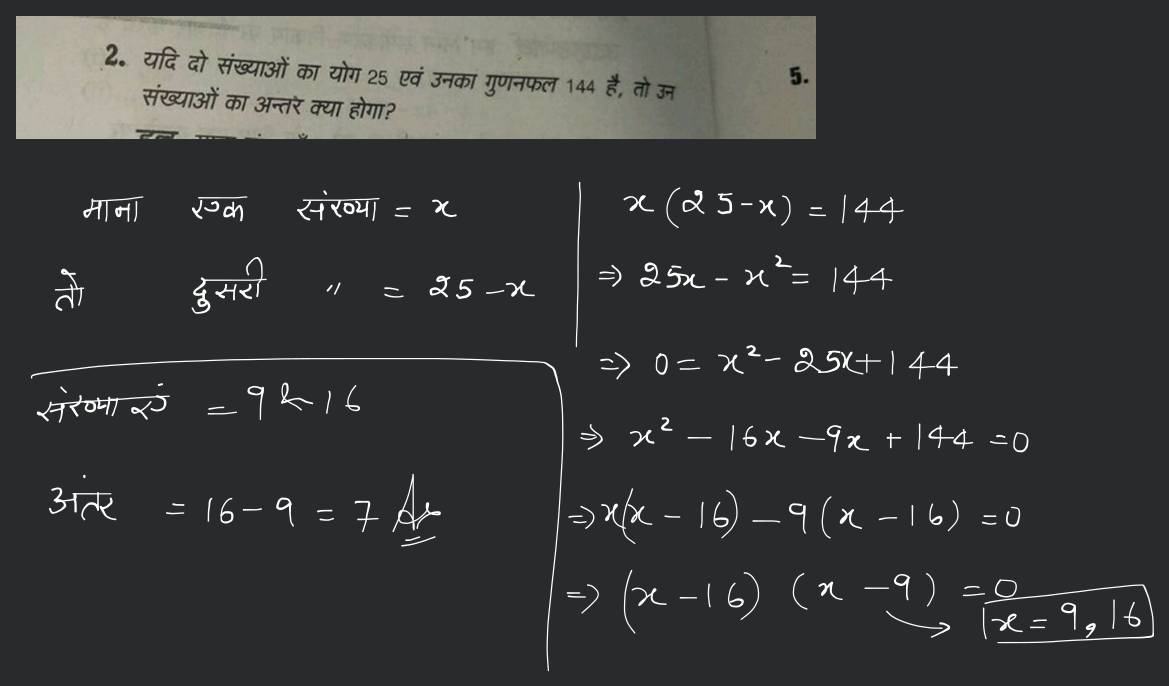 2. यदि दो संख्याओं का योग 25 एवं उनका गुणनफल 144 है, तो उन
संख्याओं का अन्तर क्या होगा?
5.
माना एक संख्या = x
तो दुसरी " = 25 - x
x(25-x) = 144
⇒ 25x - x² = 144
⇒ 0 = x² - 25x + 144
⇒ x² - 16x - 9x + 144 = 0
⇒ x(x - 16) - 9(x - 16) = 0
⇒ (x - 16) (x - 9) = 0
x = 9, 16
संख्याएं = 9 & 16
अंतर = 16 - 9 = 7 Ans